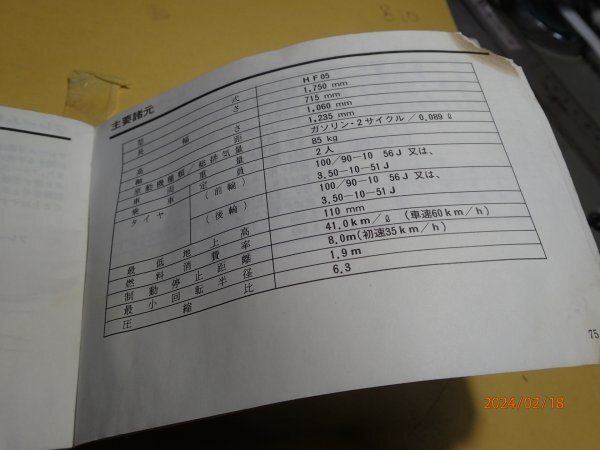 主要諸元
型 式 HF05
長 さ 1,750 mm
幅 715 mm
高 さ 1,060 mm
軸 距 1,235 mm
原動機種類/総排気量 ガソリン・2サイクル/0.089ℓ
車両重量 85 kg
乗車定員 2人
タイヤ (前輪) 100/90-10 56J 又は、
3.50-10-51J
(後輪) 100/90-10 56J 又は、
3.50-10-51J
最低地上高 110 mm
燃料消費率 41.0km/ℓ (車速60km/h)
制動停止距離 8.0m(初速35km/h)
最小回転半径 1.9m
圧縮比 6.3
75
2024/02/18